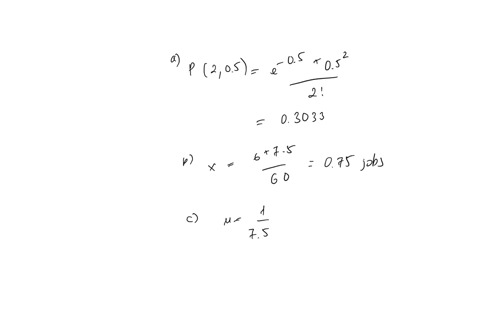 a) P(2,0.5) = e^-0.5 * 0.5^2 / 2!
= 0.3033
b) x = 6*7.5 / 60 = 0.75 jobs
c) μ = 1 / 7.5